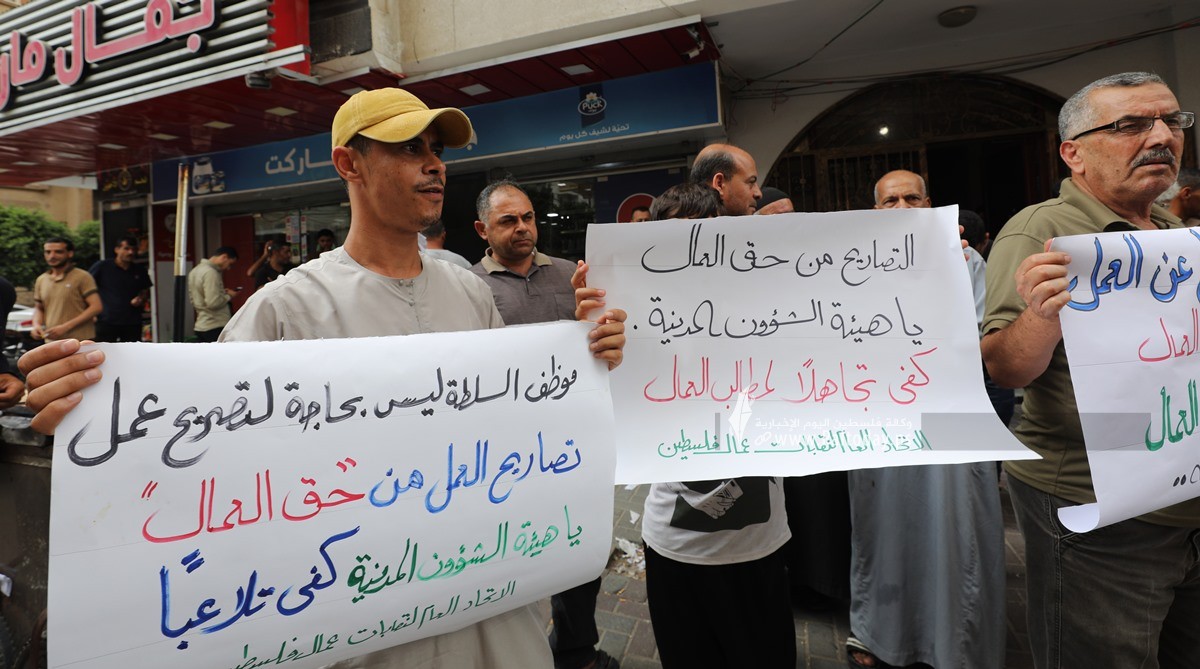 بقال مار
Puck
تحية تشيف كل يوم
ماركت
موظف السلطة ليس بحاجة لتصريح عمل
تصاريح العمل من "حق العمال"
يا هيئة الشؤون المدنية كفى تلاعباً
الاتحاد العام لنقابات عمال فلسطين
التصاريح من حق العمال
يا هيئة الشؤون المدنية .
كفى تجاهلاً لمطالب العمال
الاتحاد العام لنقابات عمال فلسطين
وكالة فلسطين اليوم الإخبارية
عن العمل
العمال
العمال